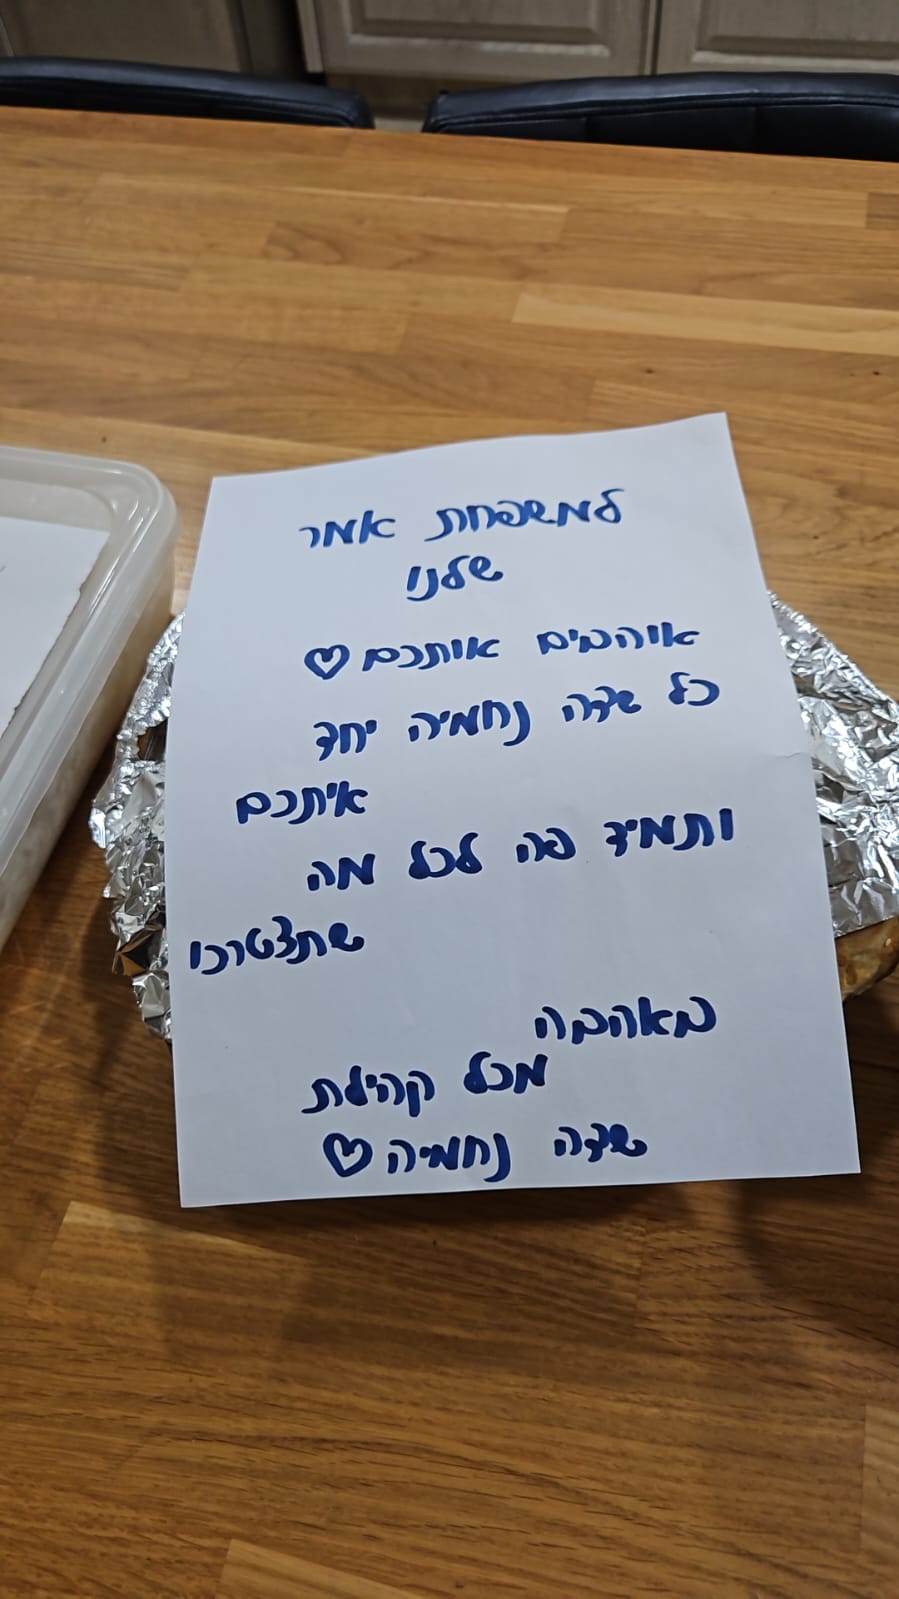 למשפחת אמר
שלנו
אוהבים אותכם ♡
כל שדה נחמיה יחד
איתכם
ותמיד פה לכל מה
שתצטרכו
באהבה
מכל קהילת
שדה נחמיה ♡